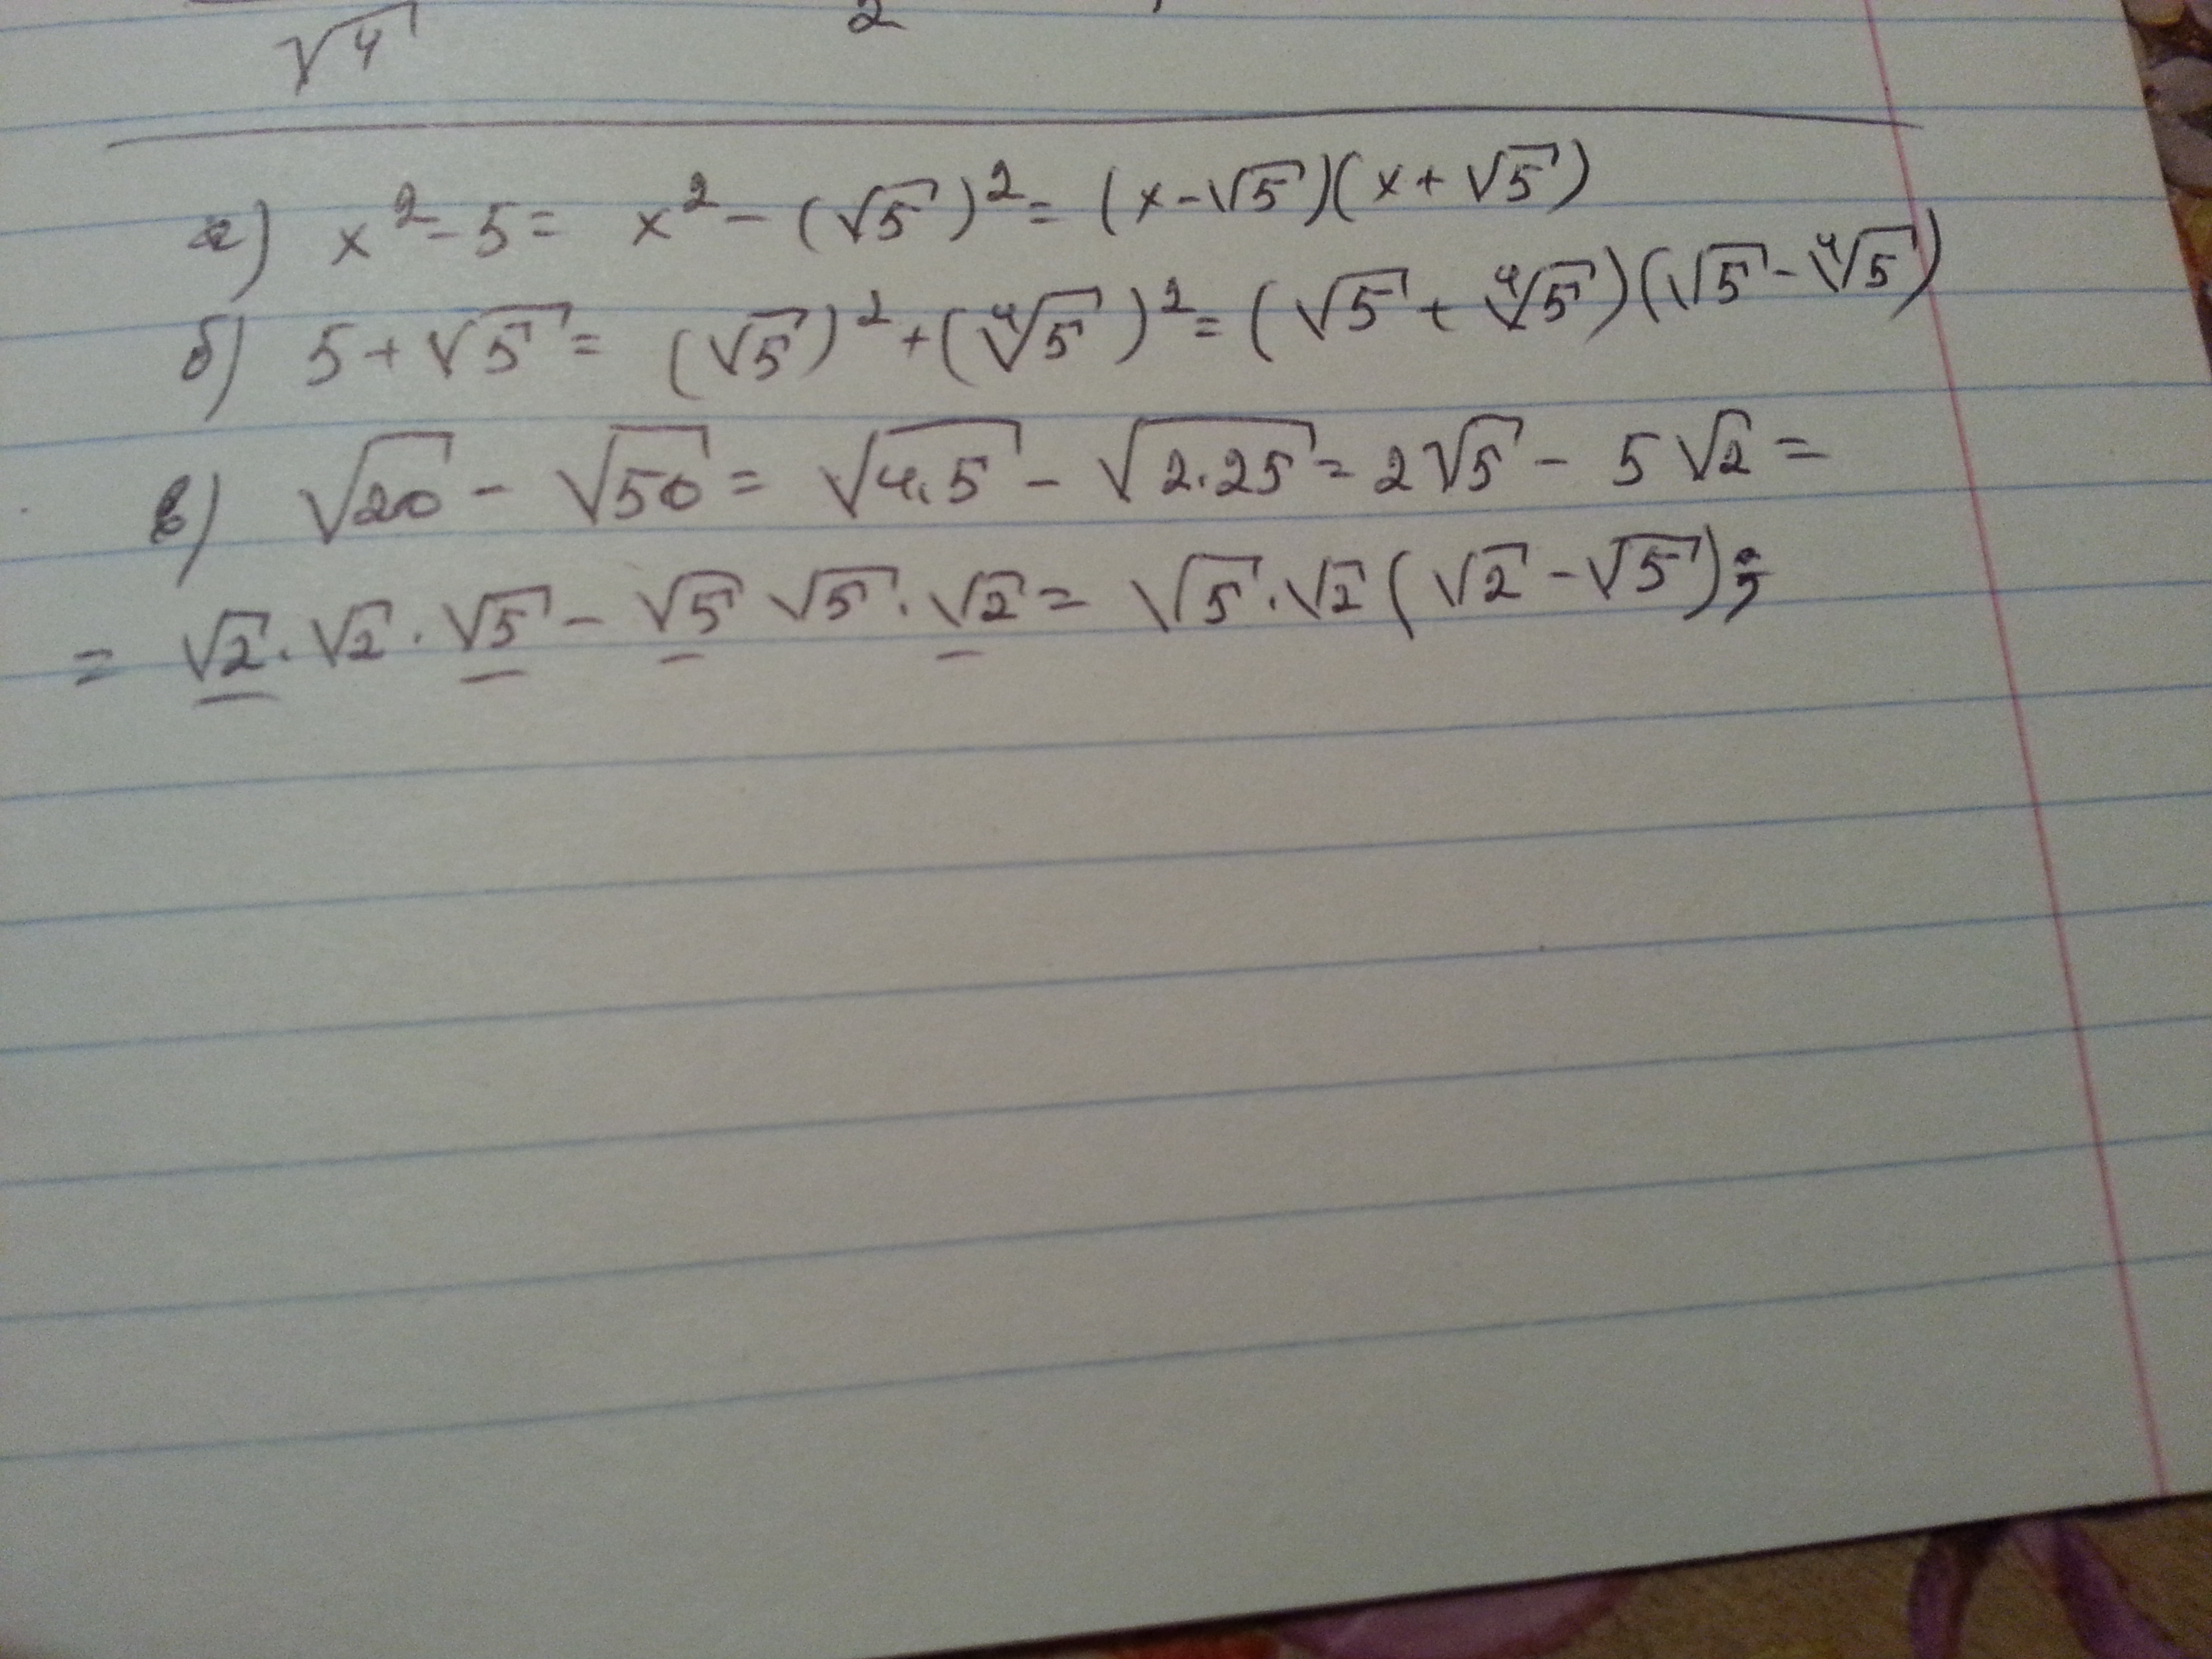 √4 2
а) x² - 5 = x² - (√5)² = (x - √5)(x + √5)
б) 5 + √5 = (√5)² + (∜5)² = (√5 + ∜5)(√5 - ∜5)
в) √20 - √50 = √4.5 - √2.25 = 2√5 - 5√2 =
= √2 · √2 · √5 - √5 √5 · √2 = √5 · √2 (√2 - √5);